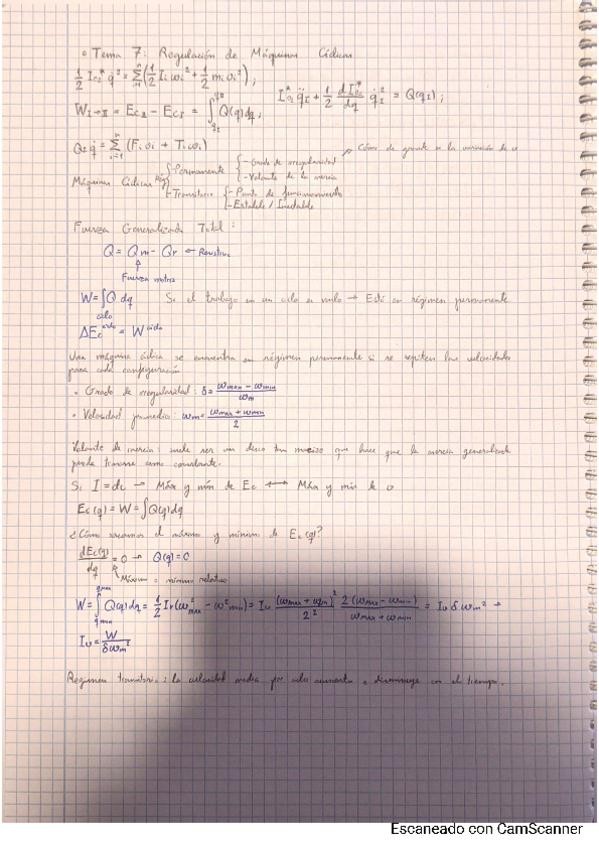 ◦ Tema 7: Regulación de Máquinas Cíclicas
½ I₀₂* q̇² = Σᵢ₌₁ⁿ (½ Iᵢ ωᵢ² + ½ mᵢ υᵢ²) ;
I₀₂* q̈_I + ½ dI₀₂*/dq q̇_I² = Q(q_I) ;
W_I→II = Ec_II − Ec_I = ∫_{q_I}^{q_II} Q(q) dq ;
Q₂ q̇ = Σᵢ₌₁ⁿ (Fᵢ υᵢ + Tᵢ ωᵢ)
Cómo de grande es la variación de υ
Máquinas Cíclicas Rég { - Permanente { - Grado de irregularidad
- Volante de la inercia
- Transitorio { - Punto de funcionamiento
- Estable / Inestable
Fuerza Generalizada Total:
Q = Qm − Qr ← Resistiva
↑
Fuerza motriz
W = ∫_ciclo Q dq Si el trabajo en un ciclo es nulo → Está en régimen permanente
ΔEc^ciclo = W^ciclo
Una máquina cíclica se encuentra en régimen permanente si se repiten las velocidades
para cada configuración
• Grado de irregularidad: δ = (ωmax − ωmin)/ωm
• Velocidad promedio: ωm = (ωmax + ωmin)/2
Volante de inercia: suele ser un disco tan macizo que hace que la inercia generalizada
pueda tomarse como constante.
Si I = cte → Máx y mín de Ec ⟷ Máx y min de υ
Ec(q) = W = ∫Q(q)dq
¿Cómo sacamos el máximo y mínimo de Ec(q)?
dEc(q)/dq = 0 → Q(q) = 0
↖ Máximo o mínimo relativo
W = ∫_{qmin}^{qmax} Q(q)dq = ½ Iv(ω²max − ω²min) = Iv (ωmax + ωm)²/2² 2(ωmax − ωmin)/(ωmax + ωmin) = Iv δ ωm² →
Iv = W/(δωm²)
Regimen transitorio: la velocidad media por ciclo aumenta o disminuye con el tiempo.
Escaneado con CamScanner